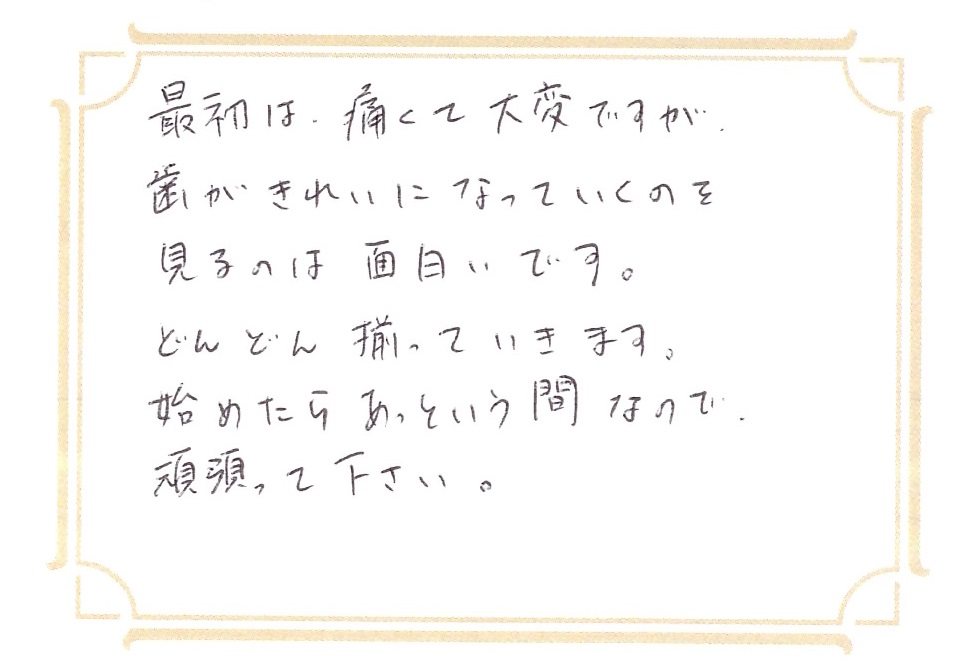 最初は、痛くて大変ですが、
歯がきれいになっていくのを
見るのは面白いです。
どんどん揃っていきます。
始めたらあっという間なので、
頑張って下さい。